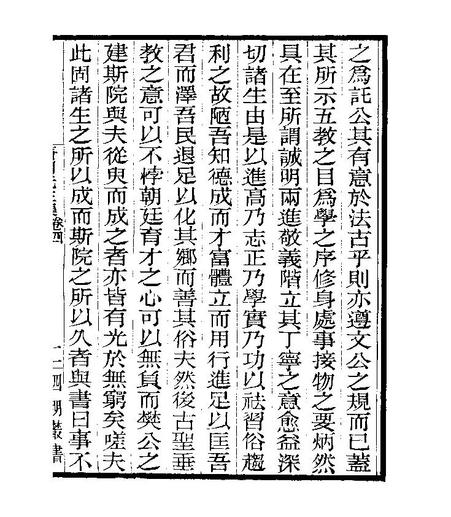 之為託公其有意於法古乎則亦遵文公之規而已蓋
其所示五教之目為學之序修身處事接物之要炳然
具在至所謂誠明兩進敬義階立其丁寧之意愈益深
切諸生由是以進高乃志正乃學實乃功以祛習俗趨
利之故陋吾知德成而才富體立而用行進足以匡吾
君而澤吾民退足以化其鄉而善其俗夫然後古聖垂
教之意可以不悖朝廷育才之心可以無負而樊公之
建斯院與夫從臾而成之者亦皆有光於無窮矣嗟夫
此固諸生之所以成而斯院之所以久者與書曰事不
卷四
明叢書